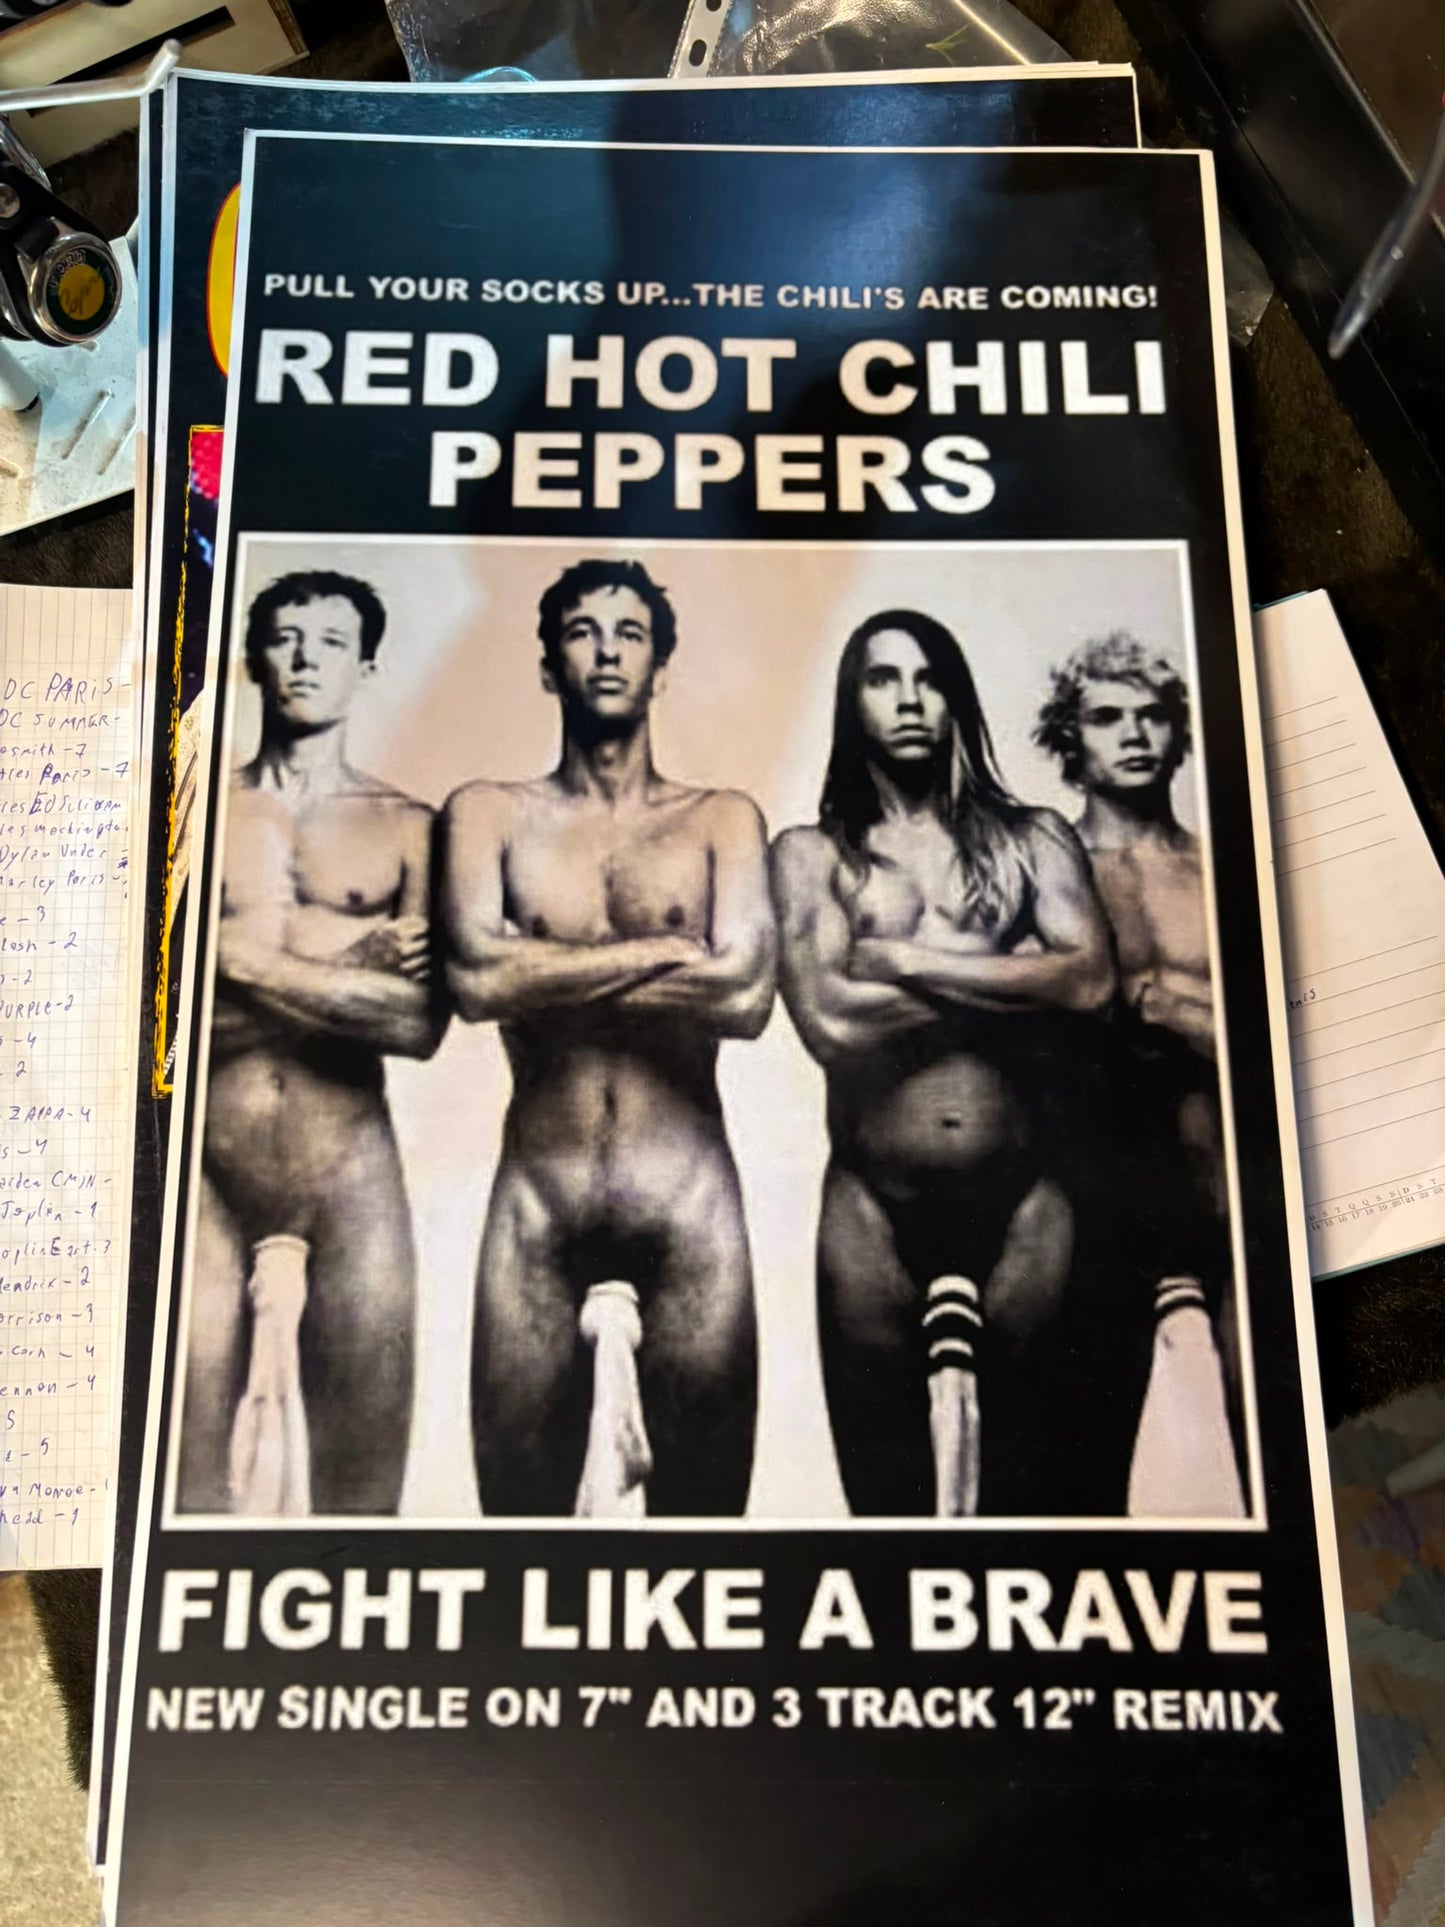 PULL YOUR SOCKS UP...THE CHILI'S ARE COMING!
RED HOT CHILI
PEPPERS
FIGHT LIKE A BRAVE
NEW SINGLE ON 7" AND 3 TRACK 12" REMIX
DC PARIS-
DC SUMMER-
smith - 7
Paris - 7
Ed Sullivan
Dylan Under
arley Paris
- 3
lash - 2
- 2
PURPLE - 2
- 4
- 2
ZAPPA - 4
s - 4
aiden CMJN -
Joplin - 1
oplin East - 3
Hendrix - 2
orrison - 3
Cash - 4
ennon - 4
S
- 5
Monroe -
head - 1